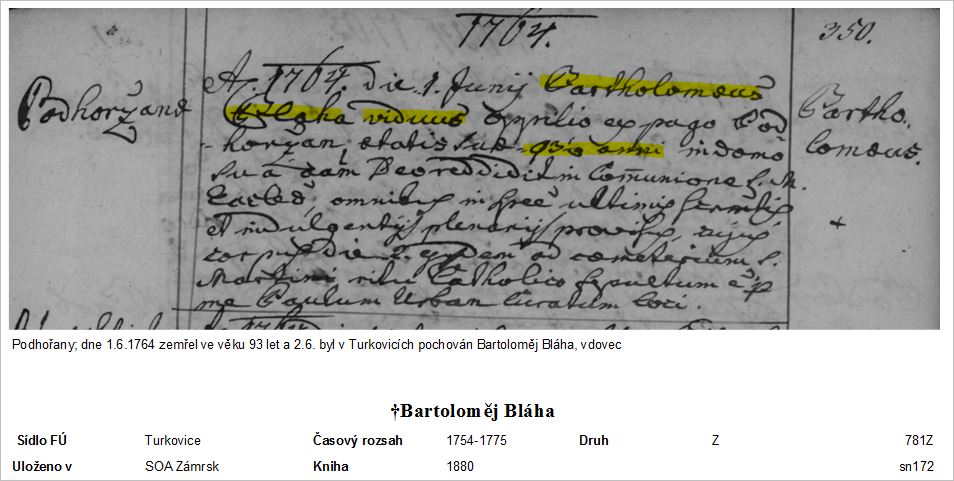 1764.
350.
Podhoržane
A. 1764 die 1. Junij Bartholomeus
Blaha viduus ex pago Pod
horžan, etatis sue 93o anni in domo
sua Deo reddidit in Comunione S. M.
omnibus in ultimis
et indulgentijs plenarijs
corpus die 2. ad cemeterium S.
Martini ritu Catholico sepultum
me Paulum Urban Curatum loci.
Bartho
lomeus.
Podhořany; dne 1.6.1764 zemřel ve věku 93 let a 2.6. byl v Turkovicích pochován Bartoloměj Bláha, vdovec
†Bartoloměj Bláha
Sídlo FÚ Turkovice Časový rozsah 1754-1775 Druh Z 781Z
Uloženo v SOA Zámrsk Kniha 1880 sn172